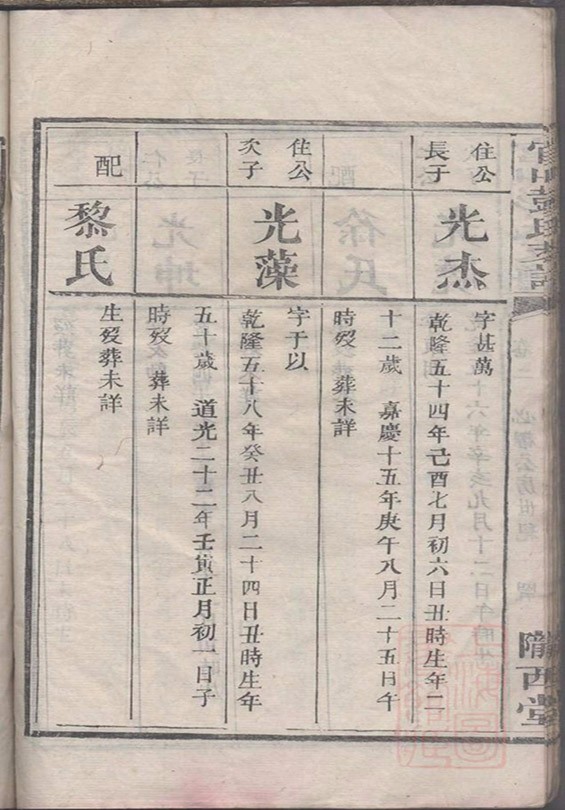 彭氏支譜
隴西堂
住公
長子
光杰
字甚萬
乾隆五十四年己酉七月初六日丑時生年二
十二歲 嘉慶十五年庚午八月二十五日午
時歿 葬未詳
住公
次子
光藻
字于以
乾隆五十八年癸丑八月二十四日丑時生年
五十歲 道光二十二年壬寅正月初一日子
時歿 葬未詳
配
黎氏
生歿葬未詳